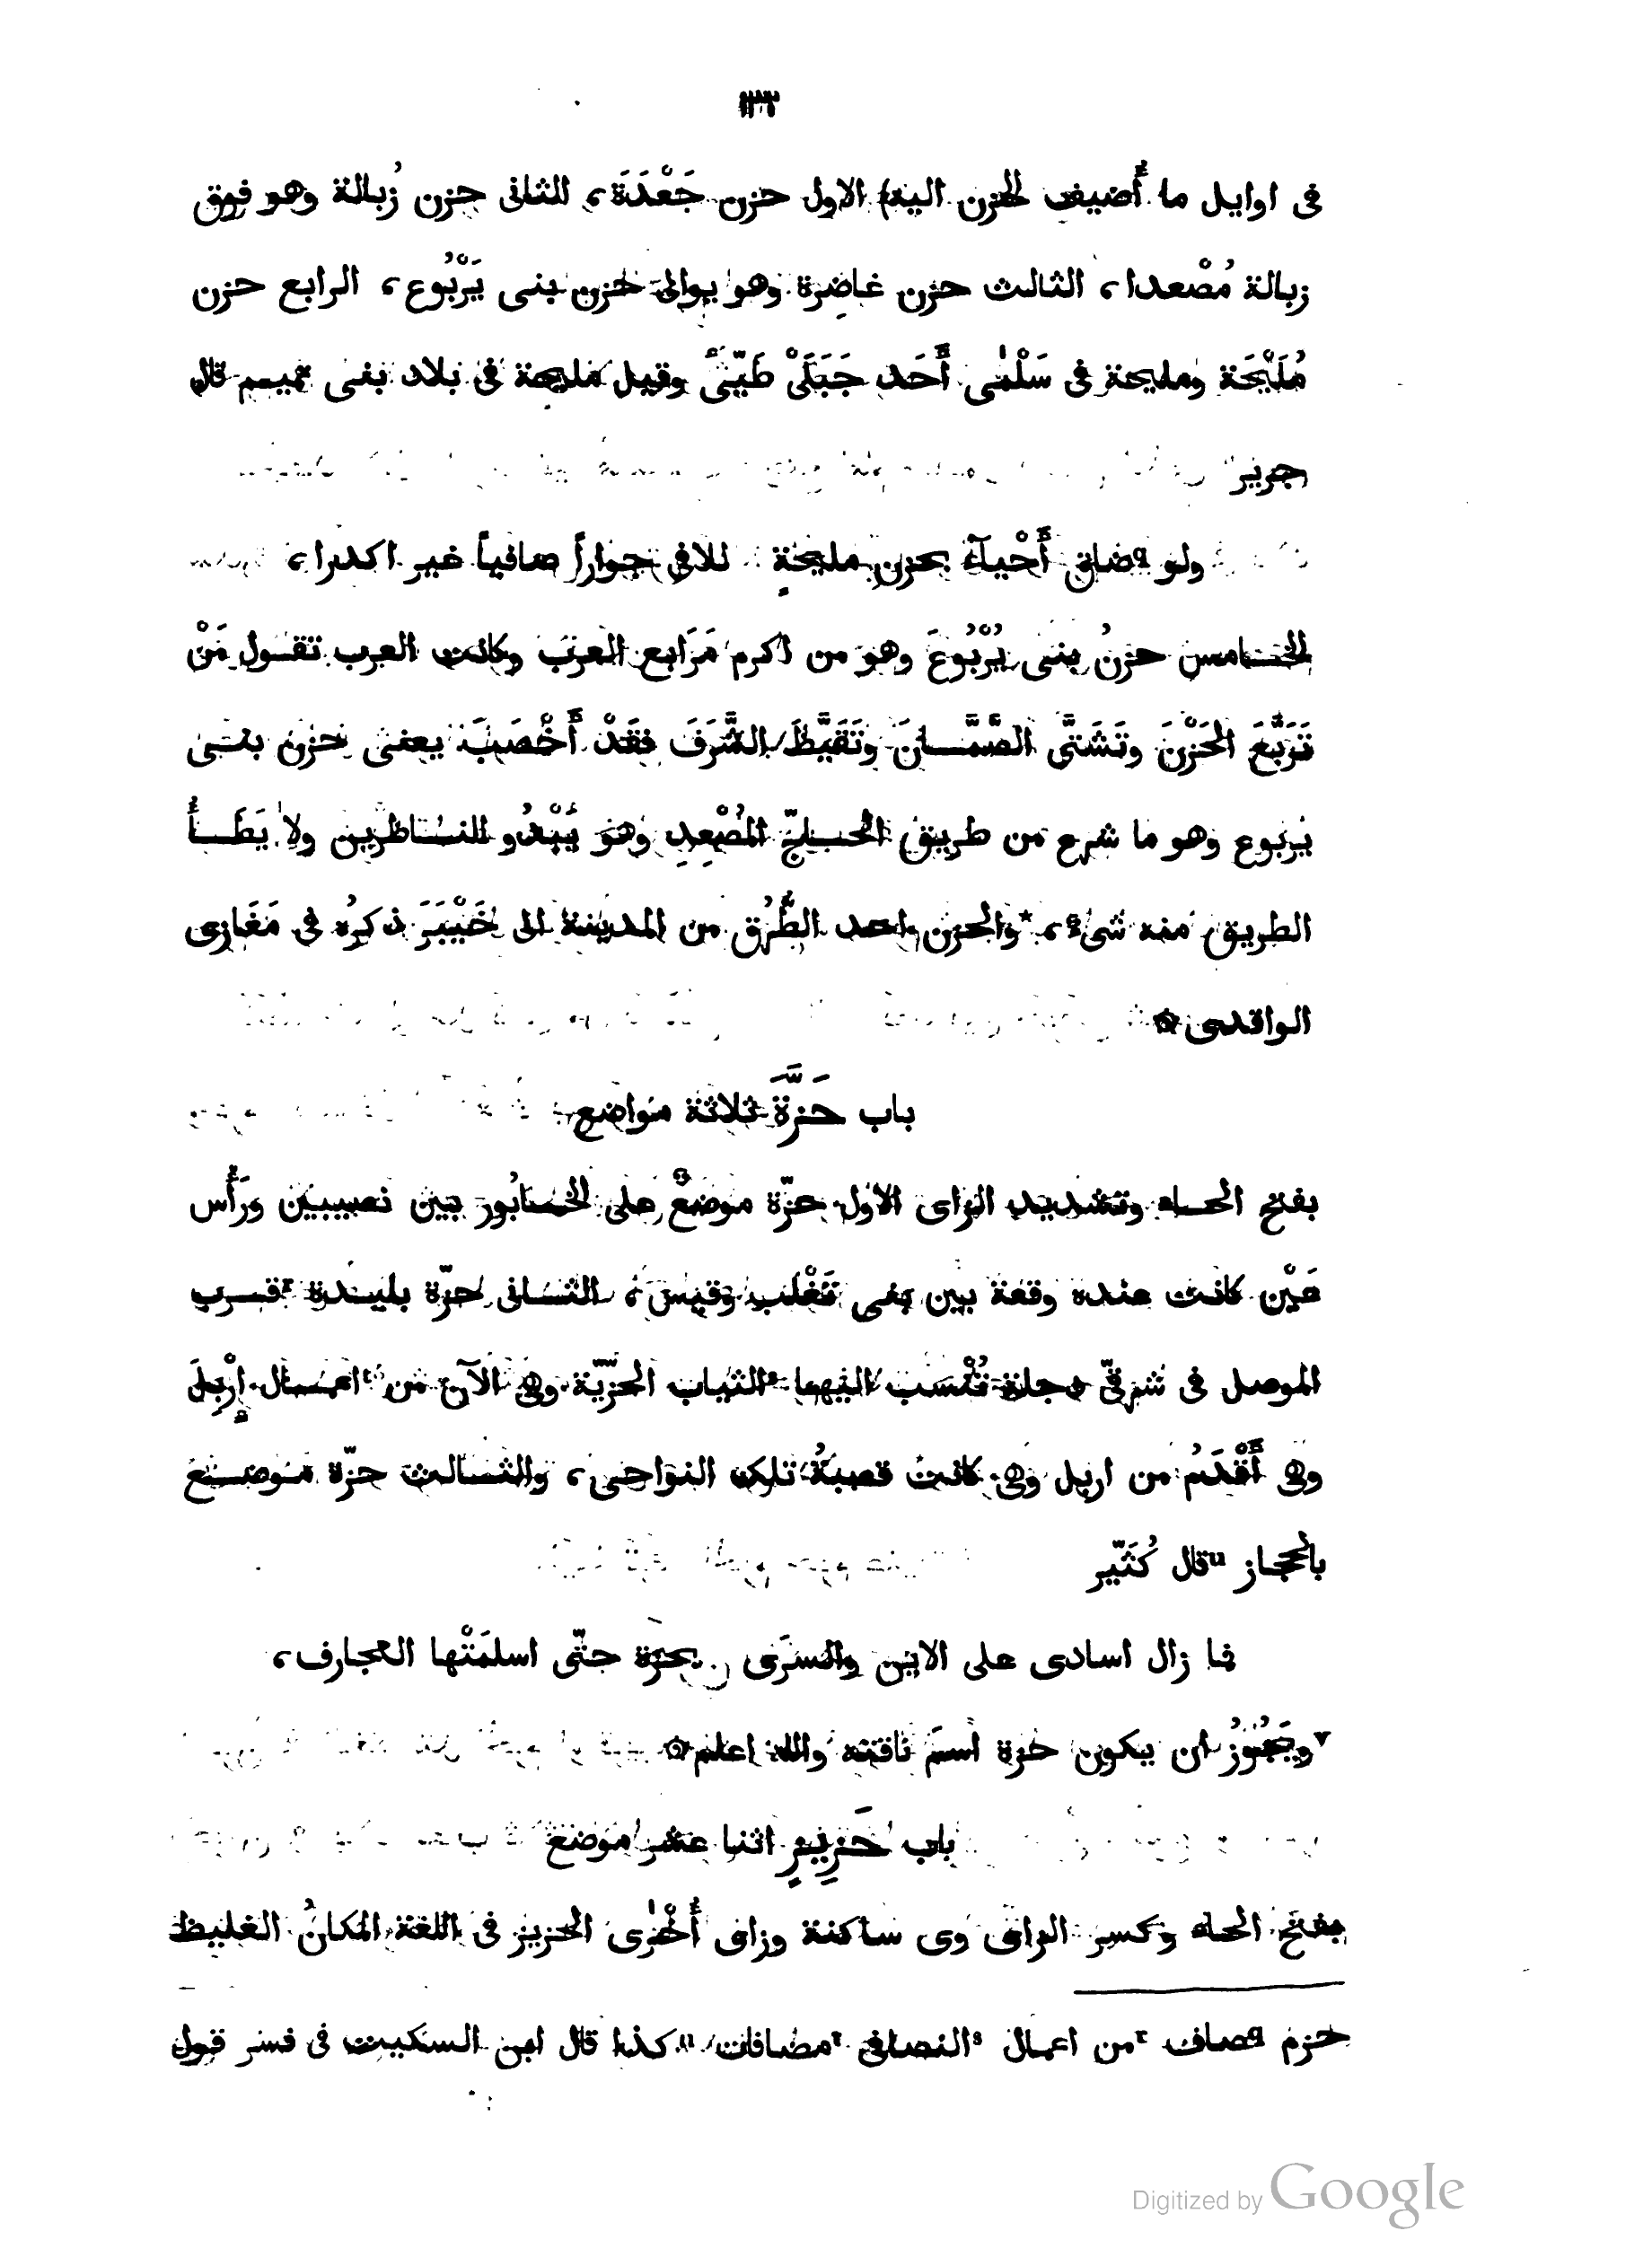 ١٣٣
فى اوايل ما أُضيف الحزن اليه، الاول حزن جَعْدَةَ، الثانى حزن زُبالة وهو فوق
زبالة مُصْعدا، الثالث حزن غاضرة وهو يوالى حزن بنى يَرْبُوع، الرابع حزن
مُلَيْحَة ومليحة فى سَلْمٰى أَحَد جَبَلَىْ طَيِّئَ وقيل مليحة فى بلاد بنى تميم قال
جرير
ولو ٩ضاق أَحْيآءَ بحزن مليحةٍ للاقى جواراً صافياً غير اكدرا،
الخامس حزنُ بنى يَرْبُوعَ وهو من اكرم مَرَابع العرب وكانت العرب تقول مَنْ
تَرَبَّعَ الحَزْنَ وتَشَتَّى الصَّمَّانَ وتَقَيَّظَ الشَّرَفَ فقَدْ أَخْصَبَ يعنى حزن بنى
يربوع وهو ما شرع من طريق الحاجّ المُصْعِدِ وهو يَبْدُو للناظرين ولا يَطَأُ
الطريق منه شىء، *والحزن احد الطُّرُق من المدينة الى خَيْبَرَ ذكره فى مَغَازى
الواقدى ۞
باب حَزَّةَ ثلاثة مواضع
بفتح الحاء وتشديد الزاى الاول حزّة موضعٌ على الخابُور بين نصيبين ورَأْس
عَيْن كانت عنده وقعة بين بنى تَغْلب وقيس، الثانى حزّة بليدة ٢قرب
الموصل فى شرقىّ دجلة تُنْسَب اليها الثياب الحزّيّة وهى الآن من اعمال إِرْبِلَ
وهى أَقْدَمُ من اربل وهى كانت قصبةُ تلك النواحى، والثالث حزّة موضع
بالحجاز ١١قال كُثَيّر
فما زال اسادى على الاين والسرَى بحزّة حتّى اسلمَتْها العجارف،
٧ويَجُوزُ ان يكون حزة اسمَ ناقته والله اعلم ۞
باب حَزِيزٍ اثنا عشر موضع
بفتح الحاء وكسر الزاى وى ساكنة وزاى أُخْرٰى الحزيز فى اللغة المكانُ الغليظ
حزم ٩صاف ٢من اعمال النصافى ٢مضافات ١١كذا قال ابن السكيت فى فسر قول
Digitized by Google